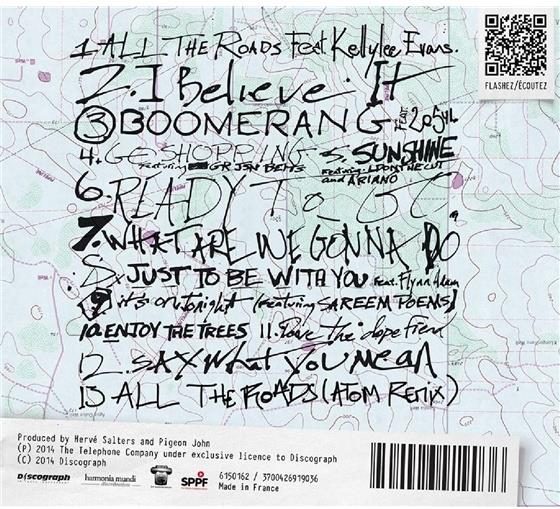 1. ALL THE ROADS Feat Kellylee Evans.
2. I Believe It
3 BOOMERANG FEAT. 20Syl.
4. GO SHOPPING featuring GR JSN BETTS 5. SUNSHINE Featuring. LDONTHECUT and ARIANO
6. READY TO GO
7. WHAT ARE WE GONNA DO
8. JUST TO BE WITH YOU feat. Flynn Adam
9 it's on tonight (featuring SAREEM POEMS)
10. ENJOY THE TREES 11. Dave the dope fiend
12. SAY What You Mean
13 ALL THE ROADS (ATOM Remix)
FLASHEZ/ÉCOUTEZ
Produced by Hervé Salters and Pigeon John
(P) 2014 The Telephone Company under exclusive licence to Discograph
(C) 2014 Discograph
Discograph harmonia mundi distribution SPPF
6150162 / 3700426919036
Made in France